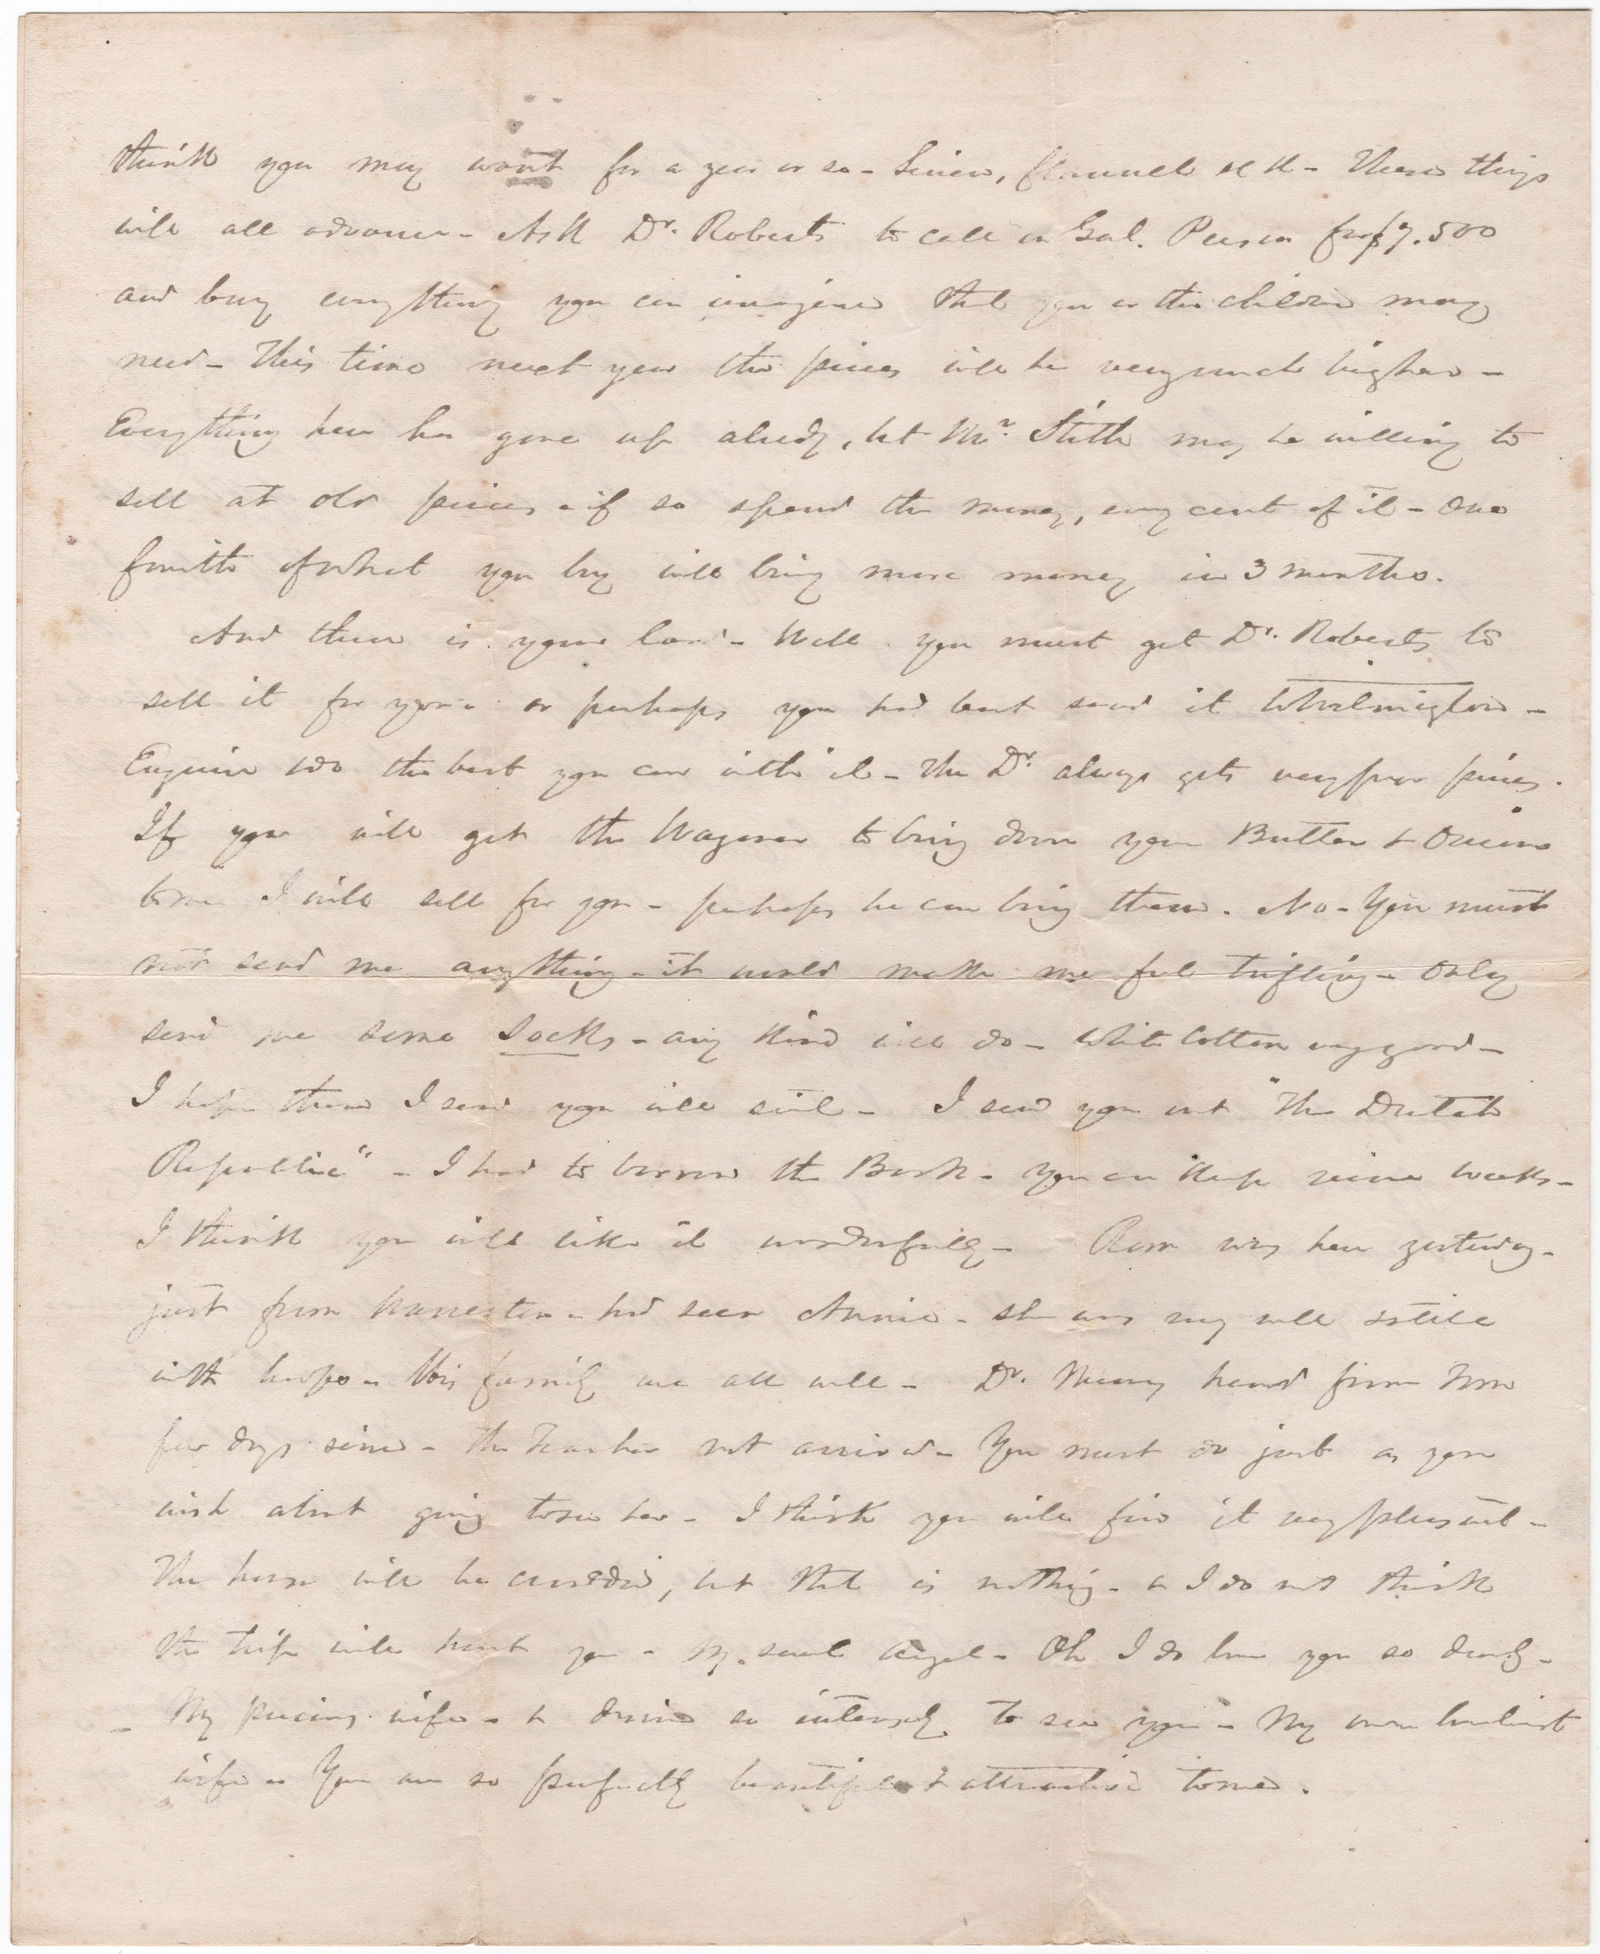 think you may want for a year or so - Linen, flannel &c &c - These things
will all advance - Ask Dr. Roberts to call on Saml. Person for $7.500
and buy everything you can imagine that you or the children may
need - This time next year the prices will be very much higher -
Everything here has gone up already, but Mr. Stith may be willing to
sell at old prices - if so spend the money, every cent of it - One
fourth of what you buy will bring more money in 3 months.
And there is your - Well you must get Dr. Roberts to
sell it for you - or perhaps you had best send it to Wilmington -
Enquire & do the best you can with it - The Dr. always gets very poor prices.
If you will get the Wagoner to bring down your Butter & Onions
to me I will sell for you - perhaps he can bring them. No - You must
not send me anything - it would make me feel trifling - Only
send me some Socks - any kind will do - White Cotton very good -
I hope those I send you will suit - I send you not "The Dutch
Republic" - I had to borrow the Book - you can keep weeks -
I think you will like it wonderfully - was here yesterday -
just from Warrenton - had seen Annie - she was very well & still
with hoops - His family are all well - Dr. heard from Tom
few days since - The Teacher not arrived - You must do just as you
wish about going to see her - I think you will find it very pleasant -
The house will be crowded, but that is nothing - & I do not think
the trip will hurt you - My sweet Angel - Oh I do love you so dearly -
- My precious wife - & desire so intensely to see you - My own
wife - You are so perfectly beautiful & attractive to me.